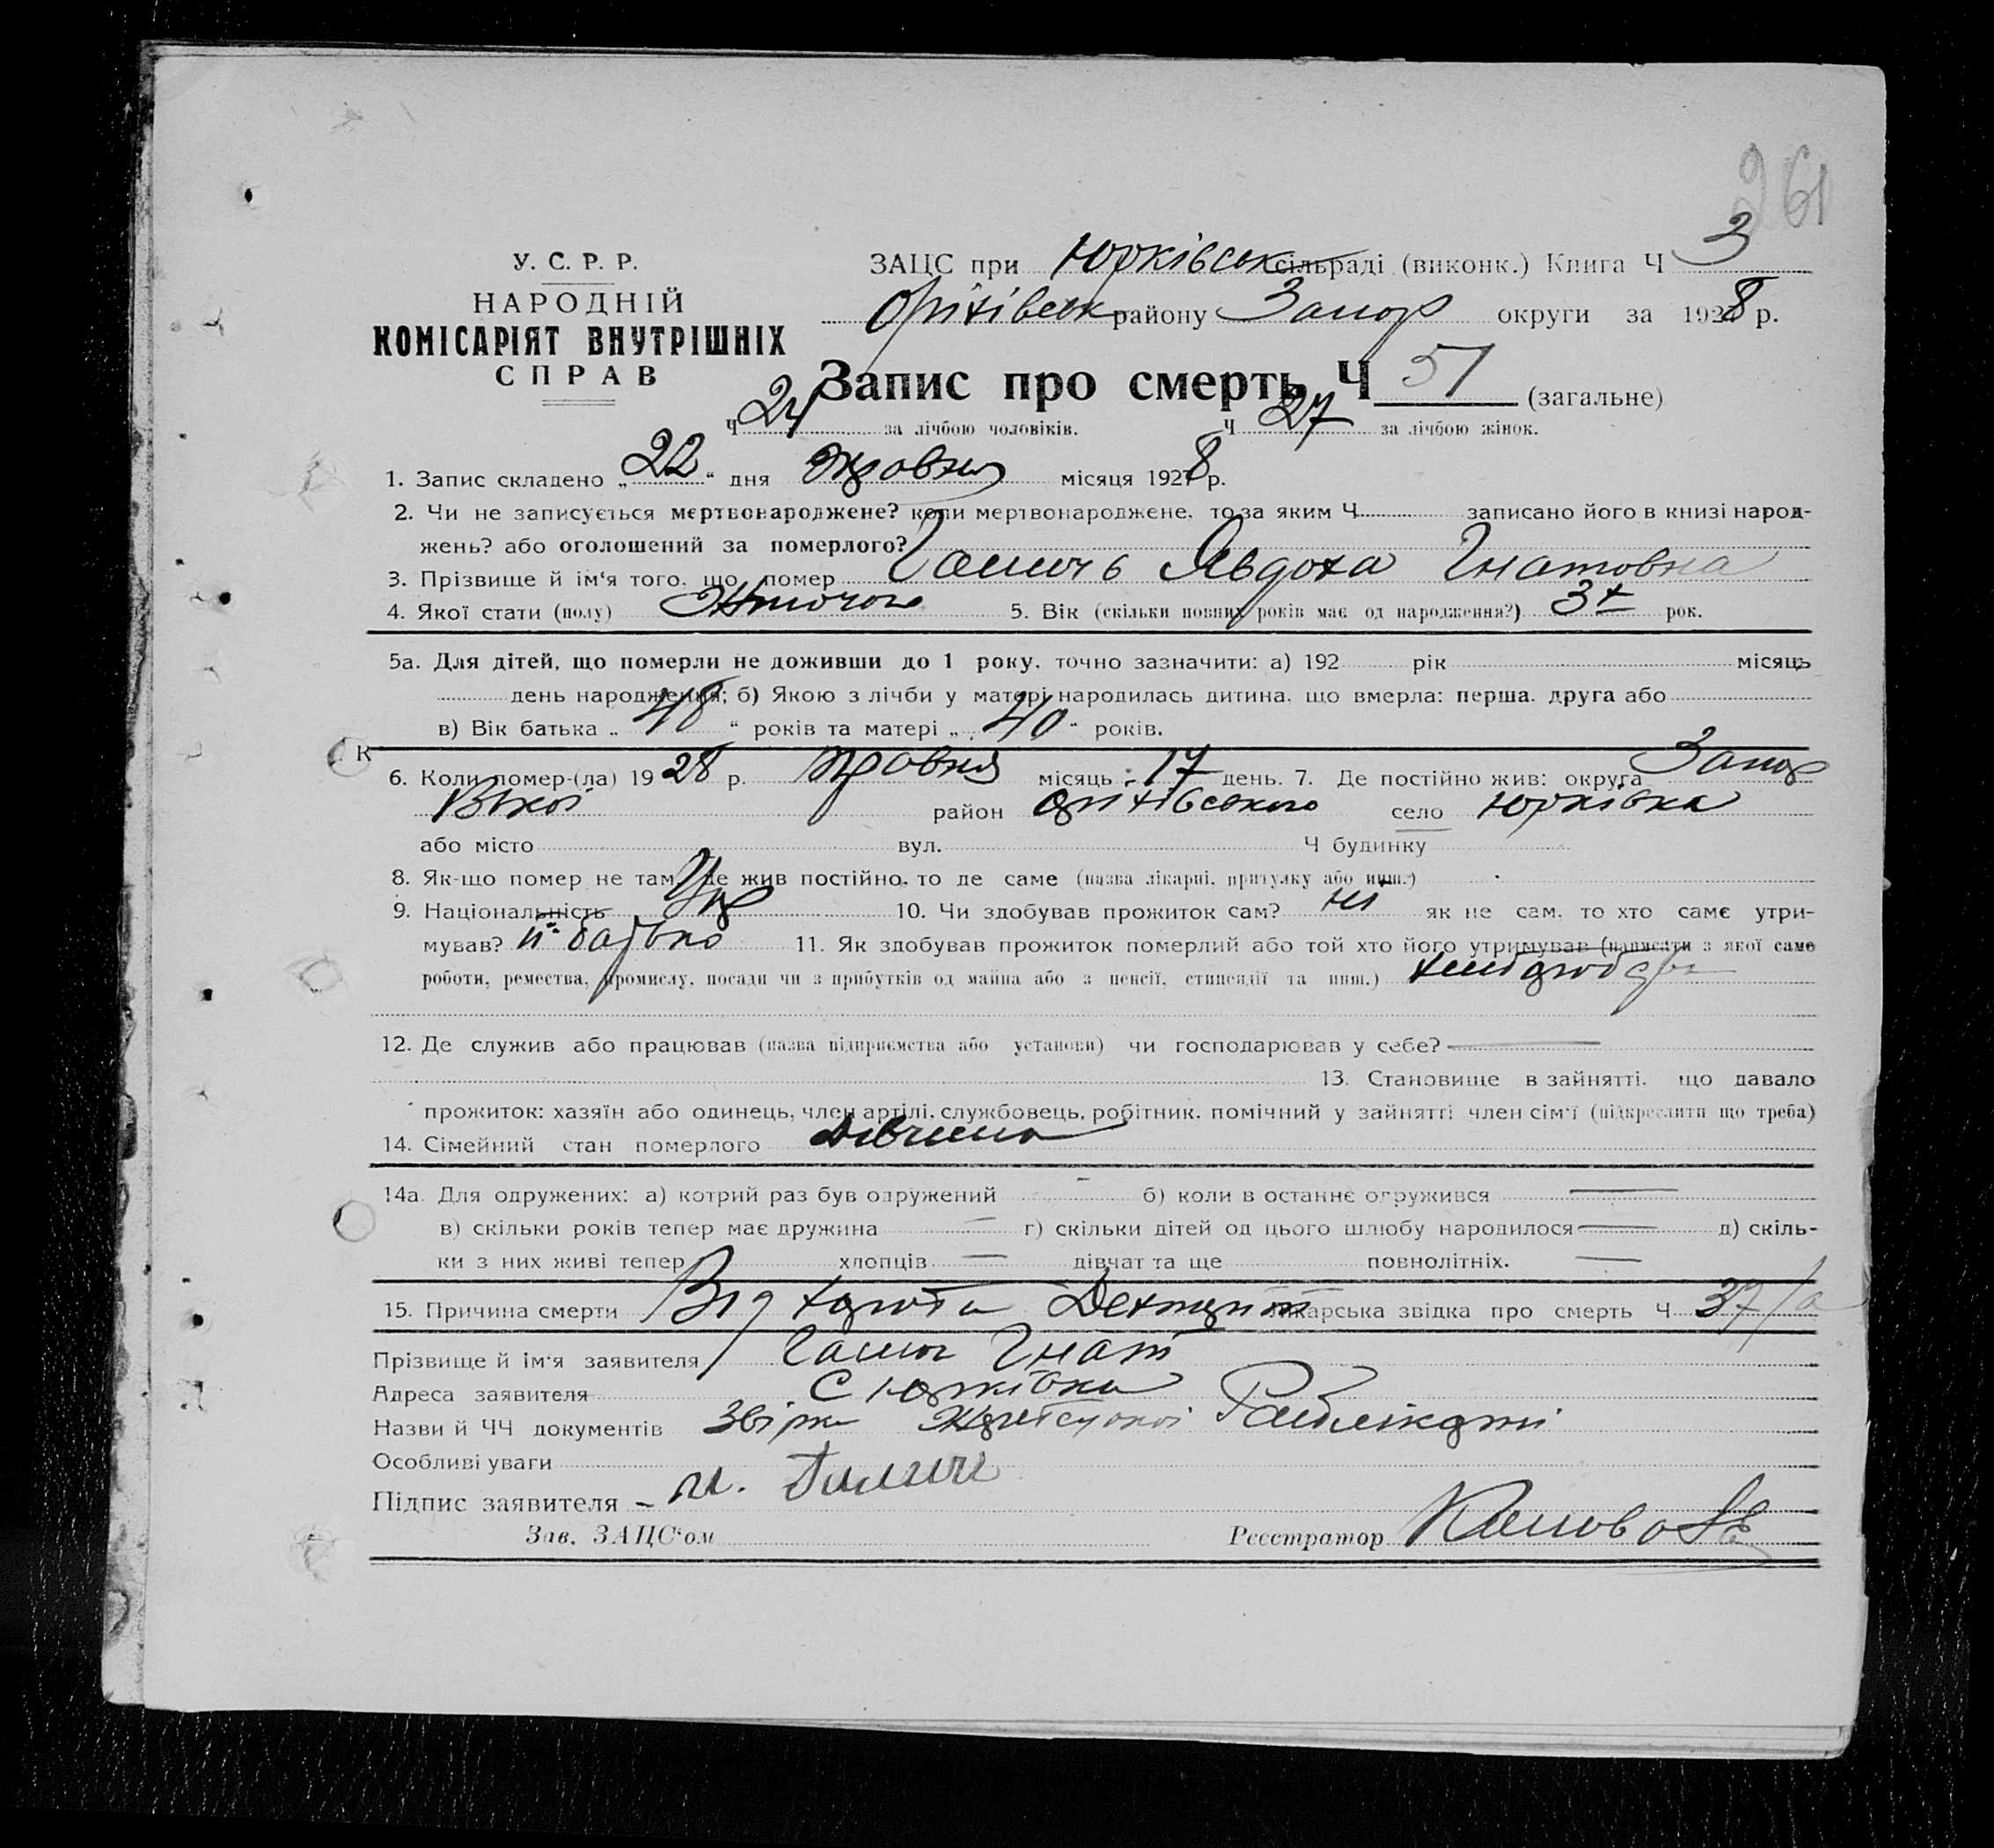 261
У. С. Р. Р.
НАРОДНІЙ
КОМІСАРІЯТ ВНУТРІШНІХ
СПРАВ
ЗАЦС при Юрківськ сільраді (виконк.) Книга Ч 3
Оріхівськ району Запор округи за 1928 р.
Запис про смерть Ч 51 (загальне)
Ч 24 за лічбою чоловіків. Ч 27 за лічбою жінок.
1. Запис складено „ 22 “ дня Травня місяця 1928 р.
2. Чи не записується мертвонароджене? коли мертвонароджене, то за яким Ч записано його в книзі народ-
жень? або оголошений за померлого?
3. Прізвище й ім‘я того, що помер Явдоха Гнатовна
4. Якої стати (полу) Жіночого 5. Вік (скільки повних років має од народження?) 3 рок.
5а. Для дітей, що померли не доживши до 1 року, точно зазначити: а) 192 рік місяць
день народження; б) Якою з лічби у матері народилась дитина, що вмерла: перша, друга або
в) Вік батька „ 48 “ років та матері „ 40 “ років.
К
6. Коли помер-(ла) 1928 р. Травня місяць 17 день. 7. Де постійно жив: округа Запор
район Оріхівського село Юрківка
або місто вул. Ч будинку
8. Як-що помер не там, де жив постійно, то де саме (назва лікарні, притулку або инш.)
9. Національність Укр 10. Чи здобував прожиток сам? ні як не сам, то хто саме утри-
мував? її батько 11. Як здобував прожиток померлий або той хто його утримував (написати з якої саме
роботи, ремества, промислу, посади чи з прибутків од майна або з пенсії, стипендії та инш.) хлібороб
12. Де служив або працював (назва підприємства або установи) чи господарював у себе? —
13. Становище в зайнятті, що давало
прожиток: хазяїн або одинець, член артілі, службовець, робітник, помічний у зайнятті член сім‘ї (підкреслити що треба)
14. Сімейний стан померлого Дівчина
14а. Для одружених: а) котрий раз був одружений — б) коли в останнє огружився —
в) скільки років тепер має дружина — г) скільки дітей од цього шлюбу народилося — д) скіль-
ки з них живі тепер хлопців — дівчат та ще повнолітніх. —
15. Причина смерти Від лікарська звідка про смерть Ч 37/а
Прізвище й ім‘я заявителя Гнат
Адреса заявителя С Юрківка
Назви й ЧЧ документів
Особливі уваги
Підпис заявителя
Зав. ЗАЦС‘ом Реєстратор